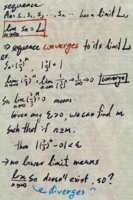 sequence
S₁, S₂, ... Sₙ ... limit L
lim Sₙ = L
n→∞
⇒ sequence converges to its limit L
or
Sₙ = (½)ⁿ |½| < 1
lim (½)ⁿ = lim 1/2ⁿ = 1/∞ → 0 converge
lim (½)ⁿ = 0 means
n→∞
Given any ε > 0, we can find m
such that if n ≥ m
then |(½)ⁿ - 0| < ε
⇒ no lower limit means
lim Sₙ doesn't exist, so?
n→∞
(diverges)